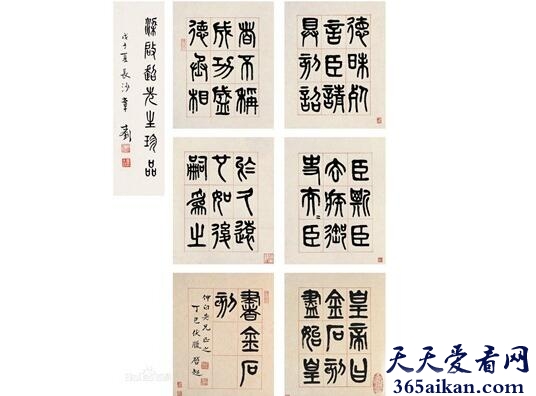 梁啟超先生珍品
戊子夏長沙
者不稱
成功盛
德丞相
德昧死
言臣請
具刻詔
於久遠
也如後
嗣為之
臣斯臣
去疾御
史夫=臣
書金石
刻
老兄正之
丁巳伏臘 啟超
皇帝曰
金石刻
盡始皇
天天爱看网
365aikan.com